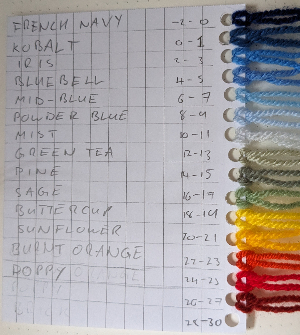 FRENCH NAVY -2-0
KOBALT 0-1
IRIS 2-3
BLUEBELL 4-5
MID-BLUE 6-7
POWDER BLUE 8-9
MIST 10-11
GREEN TEA 12-13
PINE 14-15
SAGE 16-17
BUTTERCUP 18-19
SUNFLOWER 20-21
BURNT ORANGE 22-23
POPPY 24-25
26-27
28-30